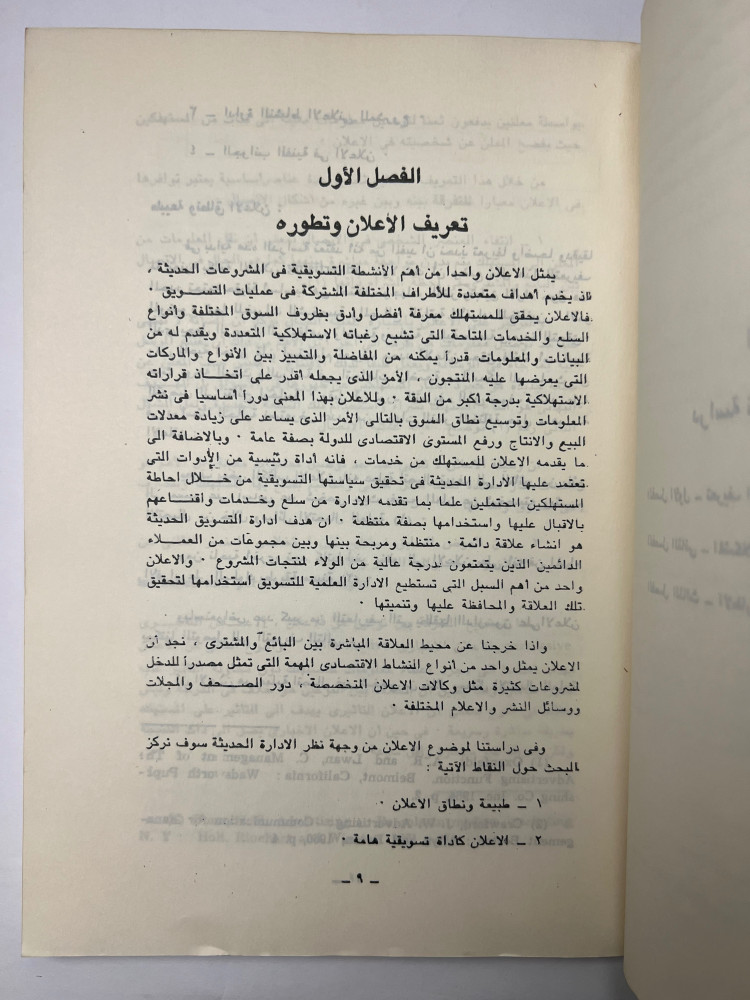 الفصل الأول
تعريف الأعلان وتطوره
يمثل الاعلان واحدا من أهم الأنشطة التسويقية فى المشروعات الحديثة ،
اذ يخدم أهداف متعددة للأطراف المختلفة المشتركة فى عمليات التسويق ·
فالاعلان يحقق للمستهلك معرفة أفضل وأدق بظروف السوق المختلفة وأنواع
السلع والخدمات المتاحة التى تشبع رغباته الاستهلاكية المتعددة ويقدم له من
البيانات والمعلومات قدرأ يمكنه من المفاضلة والتمييز بين الأنواع والماركات
التى يعرضها عليه المنتجون ، الأمر الذى يجعله أقدر على اتخـاذ قراراته
الاستهلاكية بدرجة أكبر من الدقة · وللاعلان بهذا المعنى دورأ أساسيا فى نشر
المعلومات وتوسيع نطاق السوق بالتالى الأمر الذى يساعد على زيادة معدلات
البيع والانتاج ورفع المستوى الاقتصادى للدولة بصفة عامة · وبالاضافة الى
ما يقدمه الاعلان للمستهلك من خدمات ، فانه أداة رئيسية من الأدوات التى
تعتمد عليها الادارة الحديثة فى تحقيق سياستها التسويقية من خـــلال احاطة
المستهلكين المحتملين علما بما تقدمه الادارة من سلع وخدمات واقناعهم
بالاقبال عليها واستخدامها بصفة منتظمة · ان هدف ادارة التسويق الحديثة
هو انشاء علاقة دائمة · منتظمة ومربحة بينها وبين مجموعات من العمـــلاء
الدائمين الذين يتمتعون بدرجة عالية من الولاء لمنتجات المشروع · والاعلان
واحد من أهم السبل التى تستطيع الادارة العلمية للتسويق استخدامها لتحقيق
تلك العلاقة والمحافظة عليها وتنميتها ·
واذا خرجنا عن محيط العلاقة المباشرة بين البائع والمشترى ، نجد أن
الاعلان يمثل واحد من أنواع النشاط الاقتصادى المهمة التى تمثل مصدرأ للدخل
لمشروعات كثيرة مثل وكالات الاعلان المتخصصة ، دور الصـــحف والمجلات
ووسائل النشر والاعلام المختلفة ·
وفى دراستنا لموضوع الاعلان من وجهة نظر الادارة الحديثة سوف نركز
البحث حول النقاط الآتية :
١ – طبيعة ونطاق الاعلان ·
٢ – الاعلان كأداة تسويقية هامة ·
– ٩ –